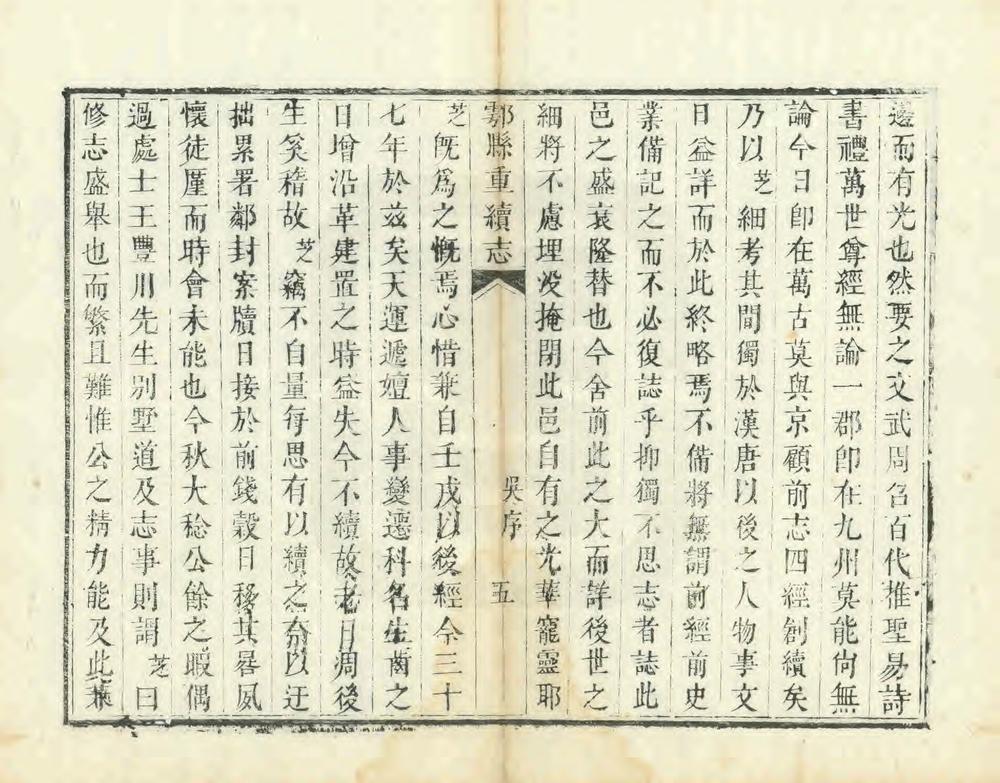 邊而有光也然要之文武周召百代推聖易詩
書禮萬世尊經無論一郡卽在九州莫能尙無
論今日卽在萬古莫與京顧前志四經創續矣
乃以芝細考其間獨於漢唐以後之人物事文
日益詳而於此終略焉不備將無謂前經前史
業備記之而不必復誌乎抑獨不思志者誌此
邑之盛衰隆替也今舍前此之大而詳後世之
細將不慮埋没掩閉此邑自有之光華寵靈耶
鄠縣重續志 吳序 五
芝旣爲之慨焉心惜兼自壬戌以後經今三十
七年於兹矣天運遞嬗人事變遷科名生齒之
日增沿革建置之時益失今不續故老日凋後
生奚稽故芝竊不自量每思有以續之奈以迂
拙累署鄰封案牘日接於前錢穀日移其晷夙
懷徒厪而時會未能也今秋大稔公餘之暇偶
過處士王豐川先生別墅道及志事則謂芝曰
修志盛舉也而繁且難惟公之精力能及此兼